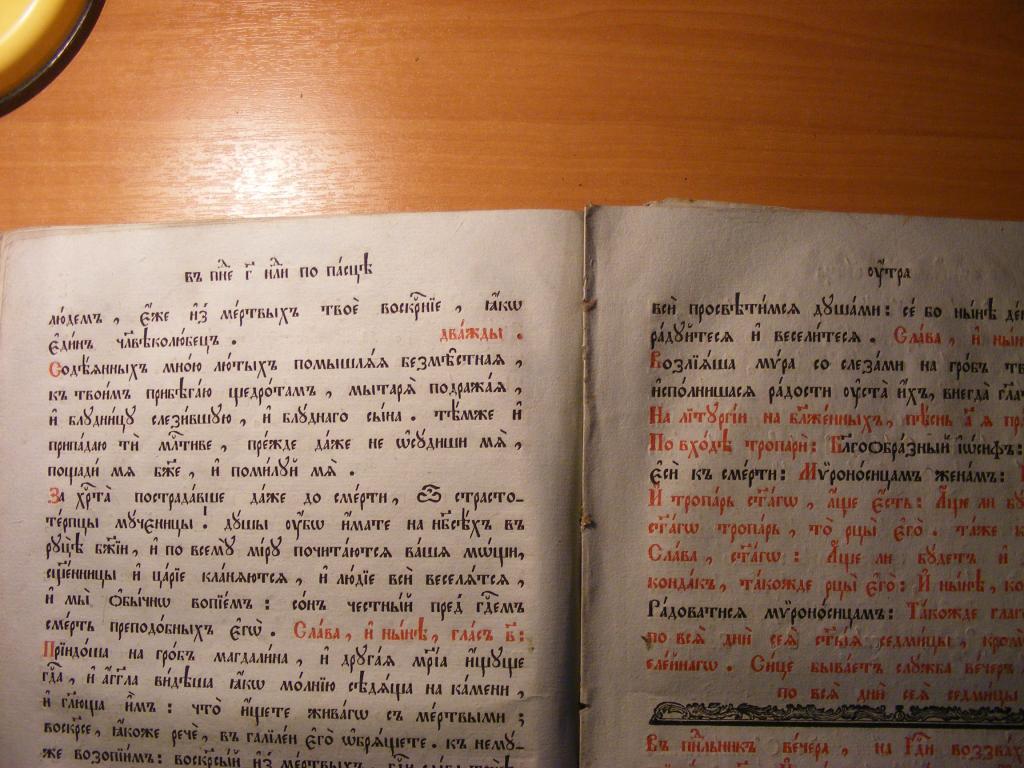 въ пн҃е г҃ и҆лѝ по па́сцѣ
лю́демъ , є҆́же и҆з̾ ме́ртвыхъ твоѐ воскрⷭ҇нїе , ꙗ҆́кѡ
є҆ди́нъ чл҃вѣколю́бецъ . два́жды .
Содѣ́ѧнныхъ мно́ю лю́тыхъ помышлѧ́ѧ безмѣ́стнаѧ ,
къ твои҄мъ прибѣга́ю щедро́тамъ , мытарѧ̀ подража́ѧ ,
и҆ блудни́цу слези́вшую , и҆ блу́днаго сы́на . тѣ́мже и҆
припа́даю ти̑ млⷭ҇тиве , пре́жде да́же не ѡ҆су́диши мѧ̀ ,
пощади̑ мѧ бж҃е , и҆ поми́луй мѧ̀ .
За хрⷭ҇та̀ пострада́вше да́же до сме́рти , ѽ страсто-
те́рпцы му́ченицы ! ду́шы ᲂу҆́бѡ и҆́мате на нб҃сѣ́хъ въ
руцѣ̀ бж҃їи , и҆ по всемꙋ̀ мі́рꙋ почита́ютсѧ ва́ша мѡ́щи ,
сщ҃е́нницы и҆ ца́рїе кла́нѧютсѧ , и҆ лю́дїе всѝ веселѧ́тсѧ ,
и҆ мы̀ ѻ҆бы́чнѡ вопїе́мъ : со́нъ честны́й пред̾ гдⷭ҇емъ
сме́рть преподо́бныхъ є҆гѡ̀ . Сла́ва , и҆ ны́нѣ , гла́съ в҃ :
Прїидо́ша на гро́бъ магдали́на , и҆ друга́ѧ мр҃і́а и҆́щуще
гдⷭ҇а , и҆ а҆́гг҃ла ви́дѣша ꙗ҆́кѡ мо́лнїю сѣдѧ́ща на ка́мени ,
и҆ гл҃юща и҆̀мъ : что̀ и҆́щете жива́гѡ съ ме́ртвыми ;
воскре́се , ꙗ҆́коже речѐ , въ галїле́и є҆го̀ ѡ҆брѧ́щете . къ немꙋ́-
же возопїи́мъ : воскрⷭ҇ый и҆з̾ ме́ртвыхъ ,
ᲂу҆́тра
всѝ просвѣти́мсѧ душа́ми : се́ бо ны́нѣ
ра́дуйтесѧ и҆ весели́тесѧ . Сла́ва , и҆
Возлїѧ́ша мѵ́ра со слеза́ми на гро́бъ
и҆спо́лнишасѧ ра́дости ᲂу҆ста̀ и҆́хъ , внегда̀
На лїтургі́и на бл҃же́нныхъ , пѣ́снь
По вхо́дѣ тропари̑ : Благоѻбра́зный і҆ѡ́сифъ :
Є҆сѝ къ сме́рти : Мѷроно́сицамъ жена́мъ :
И҆ тропа́рь ст҃а́гѡ , а҆́ще є҆́сть : А҆́ще ли
ст҃а́гѡ тропа́рь , то̀ рцы̀ є҆гѡ̀ . та́же
Сла́ва , ст҃а́гѡ : А҆́ще ли бу́детъ и҆
конда́къ , та́кожде рцы̀ є҆гѡ̀ : И҆ ны́нѣ ,
Ра́доватисѧ мѷроно́сицамъ : Та́кожде
по всѧ̑ дни̑ сеѧ̀ ст҃ы́ѧ седми́цы ,
єле́йнагѡ . Си́це быва́етъ слу́жба ве́черъ
по всѧ̑ дни̑ сеѧ̀ седми́цы
Въ ве́чера , на Гдⷭ҇и